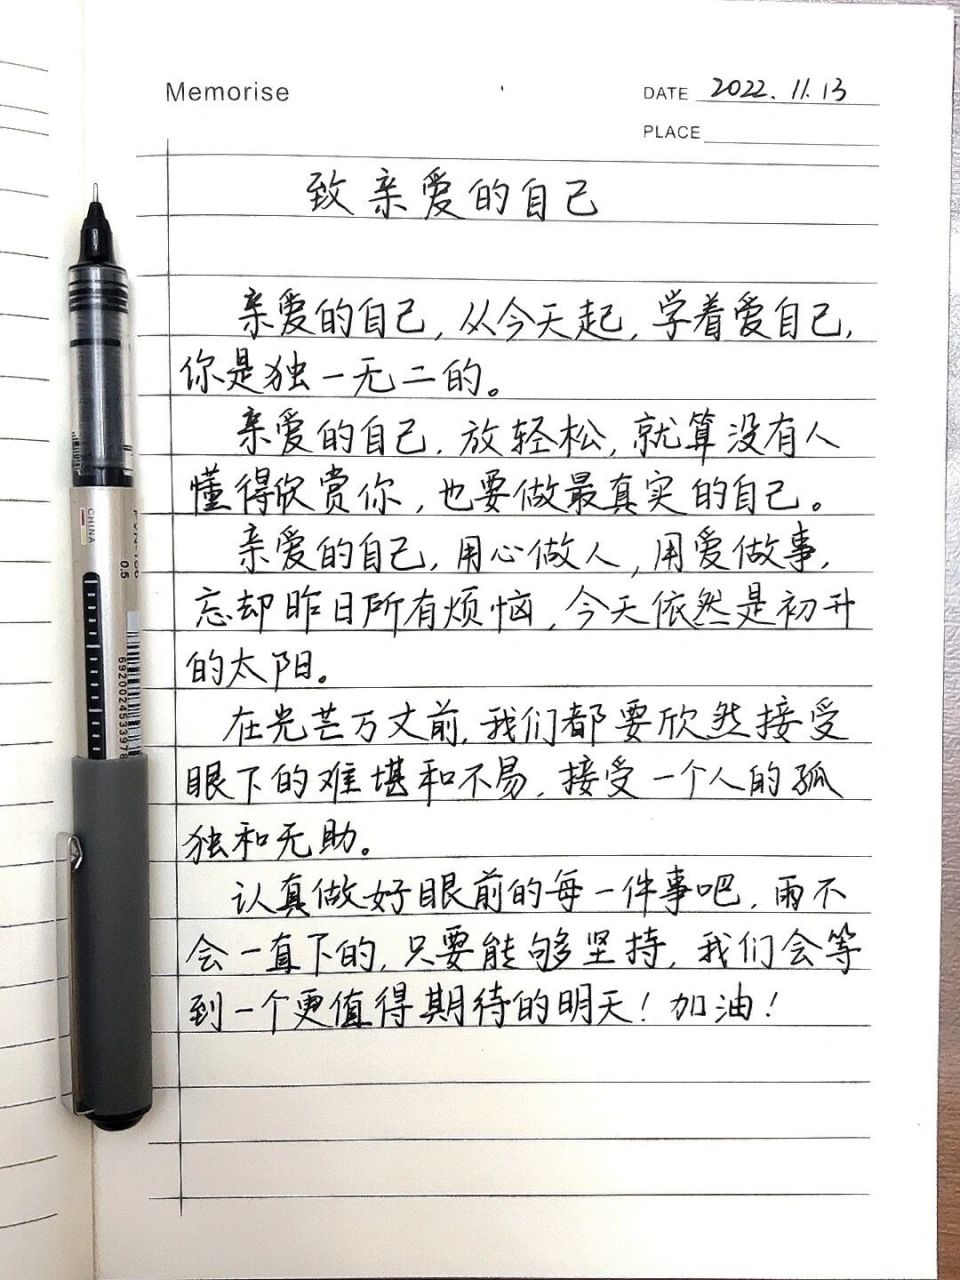 Memorise
DATE 2022.11.13
PLACE
致亲爱的自己
亲爱的自己,从今天起,学着爱自己,
你是独一无二的。
亲爱的自己,放轻松,就算没有人
懂得欣赏你,也要做最真实的自己。
亲爱的自己,用心做人,用爱做事,
忘却昨日所有烦恼,今天依然是初升
的太阳。
在光芒万丈前,我们都要欣然接受
眼下的难堪和不易,接受一个人的孤
独和无助。
认真做好眼前的每一件事吧,雨不
会一直下的,只要能够坚持,我们会等
到一个更值得期待的明天!加油!
CHINA
0.5
6920024533978